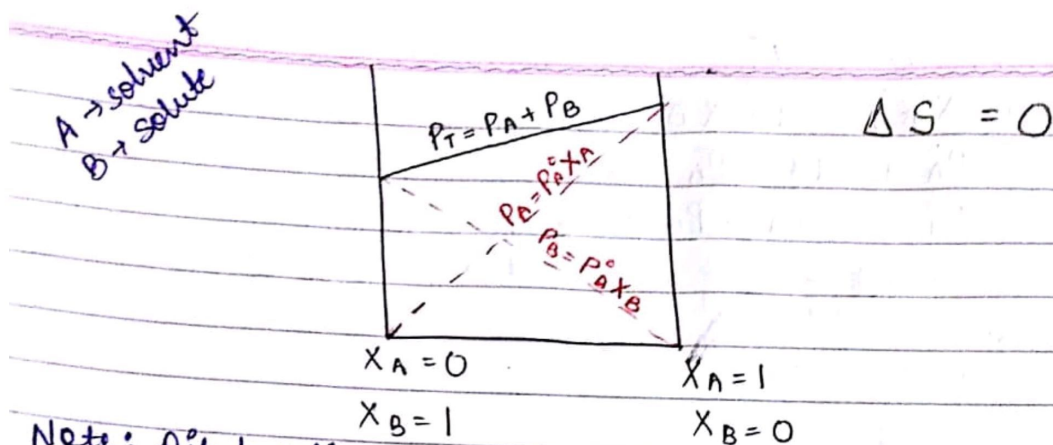 A → solvent
B → solute
P_T = P_A + P_B
Δ S = 0
P_A = P°_A X_A
P_B = P°_A X_B
X_A = 0
X_A = 1
X_B = 1
X_B = 0
Note: